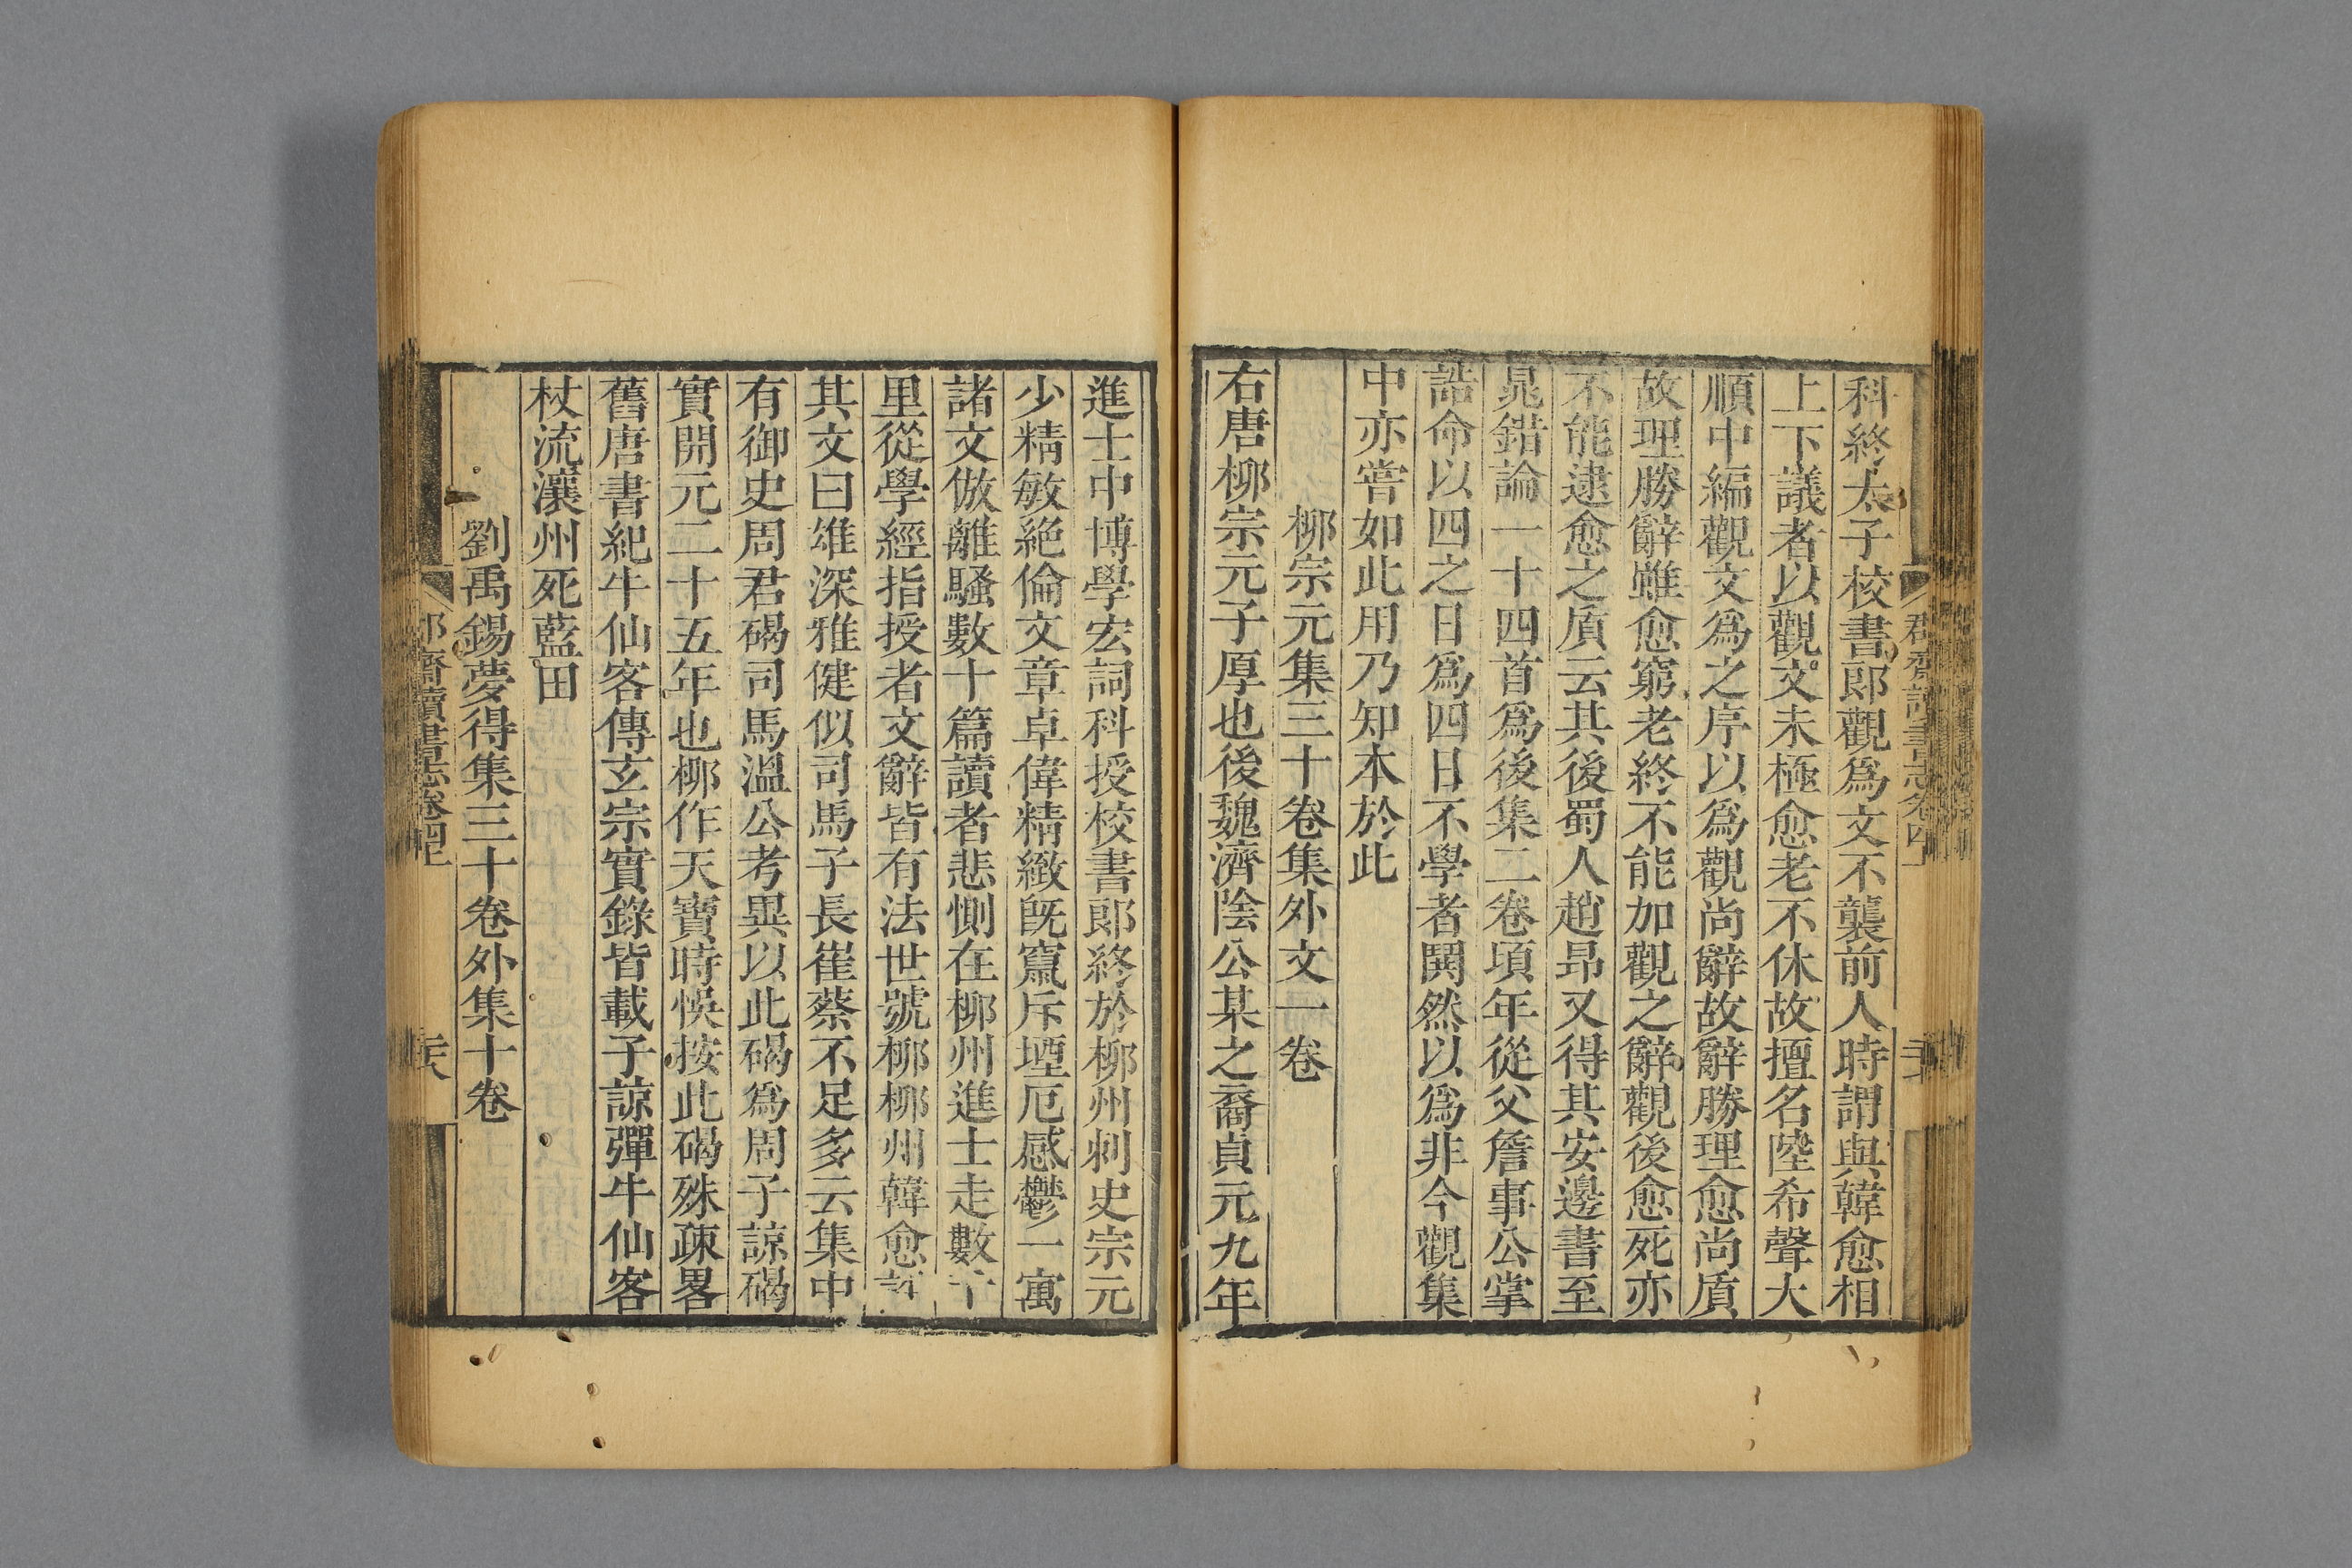 科終太子校書郎觀爲文不襲前人時謂與韓愈相
上下議者以觀文未極愈老不休故擅名陸希聲大
順中編觀文爲之序以爲觀尚辭故辭勝理愈尚質
故理勝辭雖愈窮老終不能加觀之辭觀後愈死亦
不能逮愈之質云其後蜀人趙昂又得其安邊書至
晁錯論一十四首爲後集二卷項年從父詹事公掌
誥命以四之日爲四日不學者鬨然以爲非今觀集
中亦嘗如此用乃知本於此
柳宗元集三十卷集外文一卷
右唐柳宗元子厚也後魏濟陰公某之裔貞元九年
進士中博學宏詞科授校書郎終於柳州刺史宗元
少精敏絶倫文章卓偉精緻旣竄斥堙厄感鬱一寓
諸文倣離騷數十篇讀者悲惻在柳州進士走數千
里從學經指授者文辭皆有法世號柳柳州韓愈評
其文曰雄深雅健似司馬子長崔蔡不足多云集中
有御史周君碣司馬溫公考異以此碣爲周子諒碣
實開元二十五年也柳作天寶時悞按此碣殊疎畧
舊唐書紀牛仙客傳玄宗實錄皆載子諒彈牛仙客
杖流瀼州死藍田
劉禹錫夢得集三十卷外集十卷
郡齋讀書志卷四上